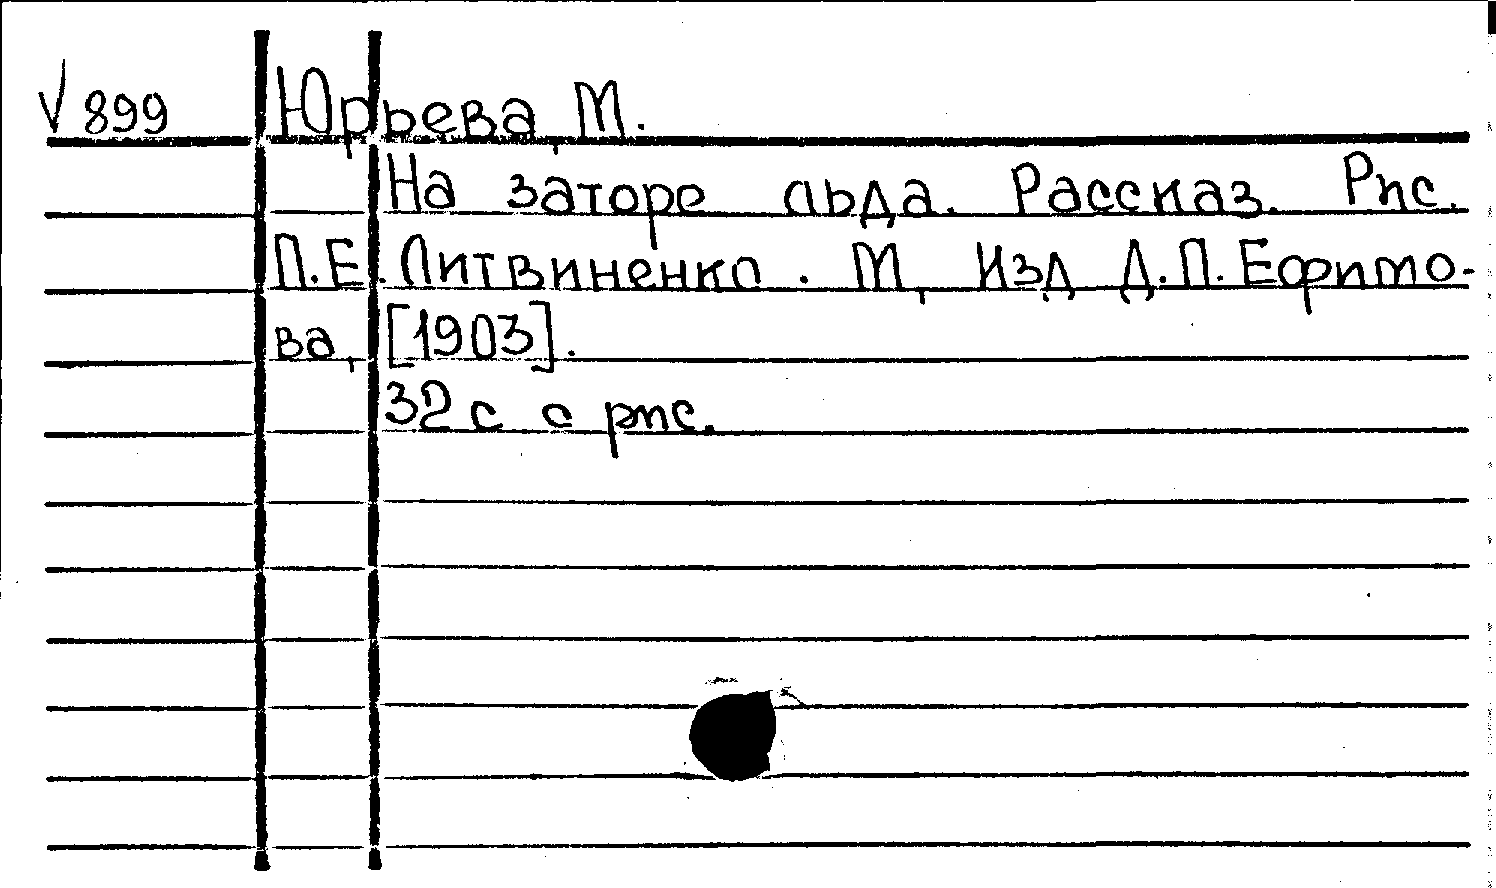 V 899 Юрьева, М.
На заторе льда. Рассказ. Рис.
П.Е. Литвиненко. М, Изд Д.П. Ефимо-
ва, [1903].
32 с с рис.